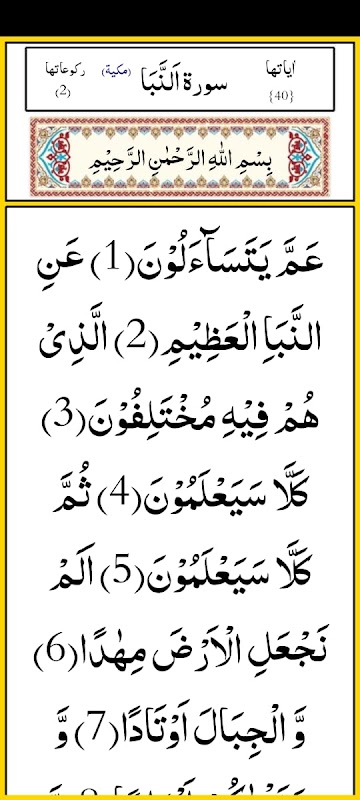 اٰیاتھا سورة اَلنَّبَا (مكية) ركوعاتها
{40} (2)
بِسْمِ اللّٰهِ الرَّحْمٰنِ الرَّحِيْمِ
عَمَّ يَتَسَآءَلُوْنَ(1) عَنِ
النَّبَاِ الْعَظِيْمِ(2) الَّذِیْ
هُمْ فِيْهِ مُخْتَلِفُوْنَ(3)
كَلَّا سَيَعْلَمُوْنَ(4) ثُمَّ
كَلَّا سَيَعْلَمُوْنَ(5) اَلَمْ
نَجْعَلِ الْاَرْضَ مِهٰدًا(6)
وَّ الْجِبَالَ اَوْتَادًا(7) وَّ